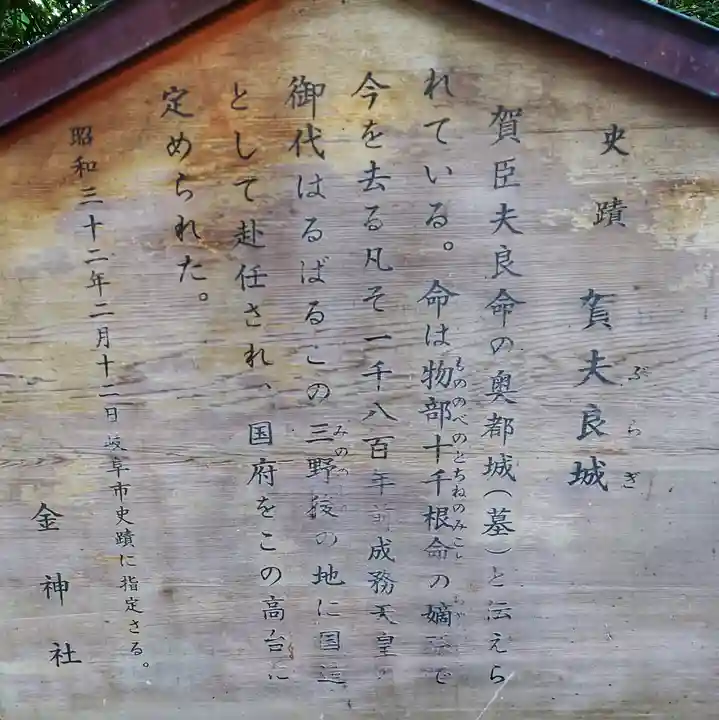 史蹟 賀夫良城
ぶらぎ
賀臣夫良命の奥都城(墓)と伝えら
れている。命は物部十千根命の嫡 で
もののべのとちねのみこ
今を去る凡そ一千八百年前成務天皇
御代はるばるこの三野後の地に国造
みのの
として赴任され、国府をこの高台に
定められた。
昭和三十二年二月十二日岐阜市史蹟に指定さる。
金神社